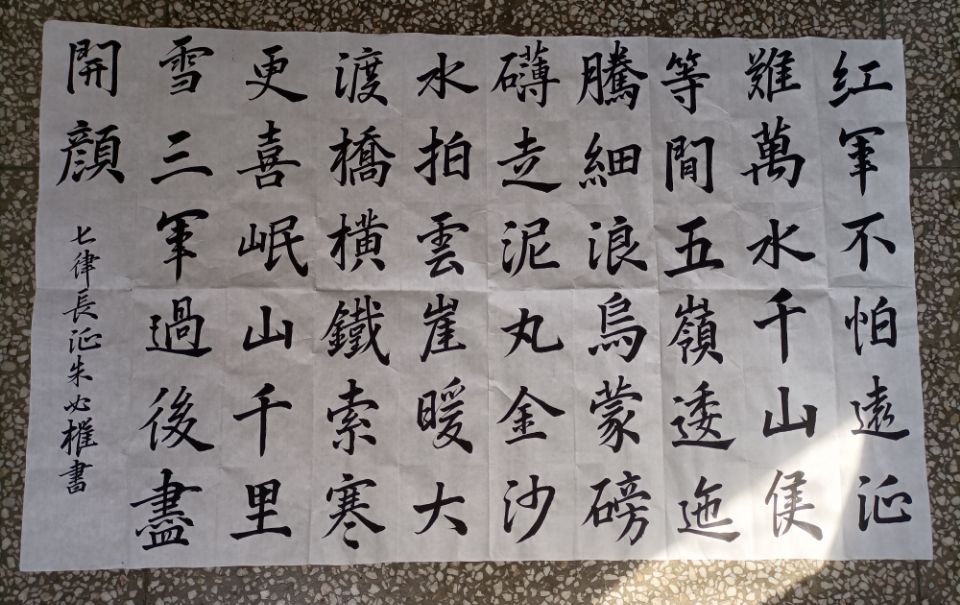 红軍不怕遠征
難萬水千山隻
等間五嶺逶迤
騰細浪烏蒙磅
礴走泥丸金沙
水拍雲崖暖大
渡橋横鐵索寒
更喜岷山千里
雪三軍過後盡
開顔
七律長征朱必權書